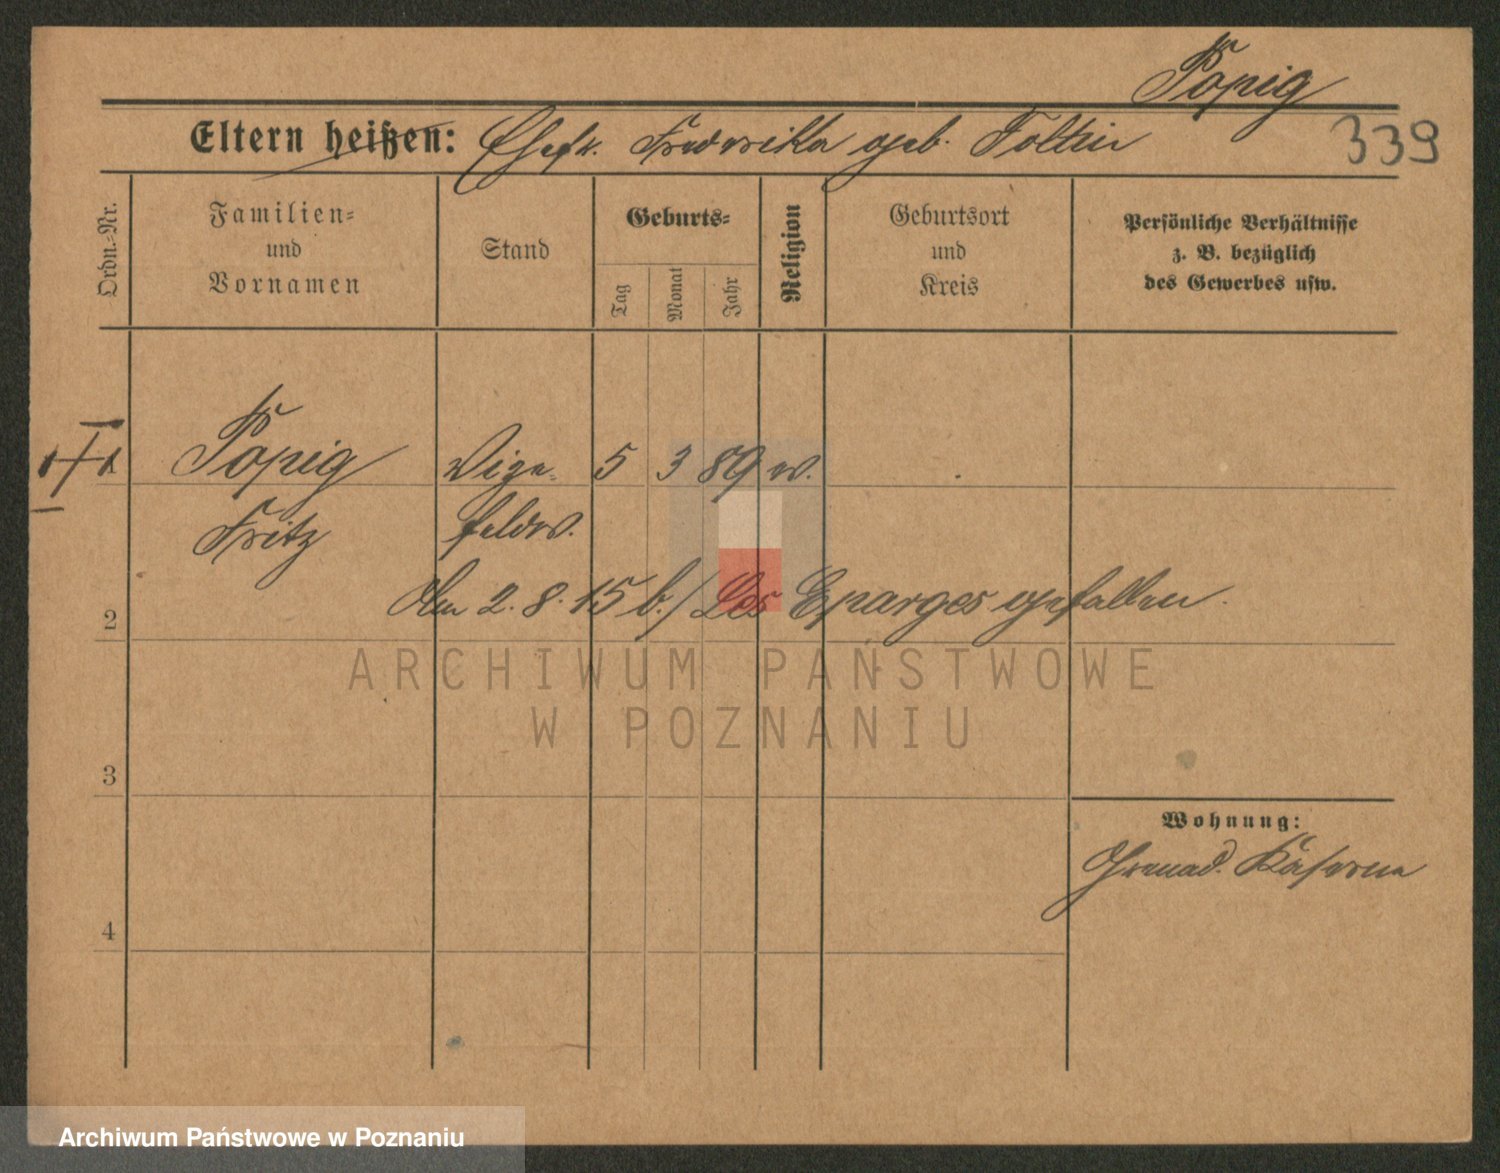 Popig
339
Eltern heißen: Ehefr. Frederika geb. Foltin
Ordn.-Nr.
Familien-
und
Vornamen
Stand
Geburts-
Tag
Monat
Jahr
Religion
Geburtsort
und
Kreis
Persönliche Verhältnisse
z. B. bezüglich
des Gewerbes usw.
1 Popig Vize- 5 3 89 ev.
Fritz feldw.
Am 2. 8. 15 b./ Les Eparges gefallen.
2
ARCHIWUM PAŃSTWOWE
W POZNANIU
3
Wohnung:
Grenad. Kaserne
4
Archiwum Państwowe w Poznaniu